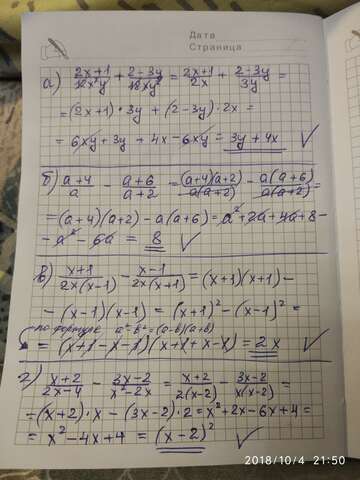 Дата
Страница
а) (2x+1)/(12x²y) + (2-3y)/(18xy²) = (2x+1)/(2x) + (2-3y)/(3y) =
=(2x+1)·3y + (2-3y)·2x =
= 6xy + 3y + 4x - 6xy = 3y + 4x ✓
б) (a+4)/a - (a+6)/(a+2) = (a+4)(a+2)/(a(a+2)) - a(a+6)/(a(a+2)) =
= (a+4)(a+2) - a(a+6) = a² + 2a + 4a + 8 -
- a² - 6a = 8 ✓
в) (x+1)/(2x(x-1)) - (x-1)/(2x(x+1)) = (x+1)(x+1) -
- (x-1)(x-1) = (x+1)² - (x-1)² =
по формуле a²-b²=(a-b)(a+b)
= (x+1-x-1)(x+1+x-x) = 2x ✓
г) (x+2)/(2x-4) - (3x-2)/(x²-2x) = (x+2)/(2(x-2)) - (3x-2)/(x(x-2)) =
=(x+2)·x - (3x-2)·2 = x²+2x-6x+4 =
= x²-4x+4 = (x-2)² ✓
2018/10/4 21:50